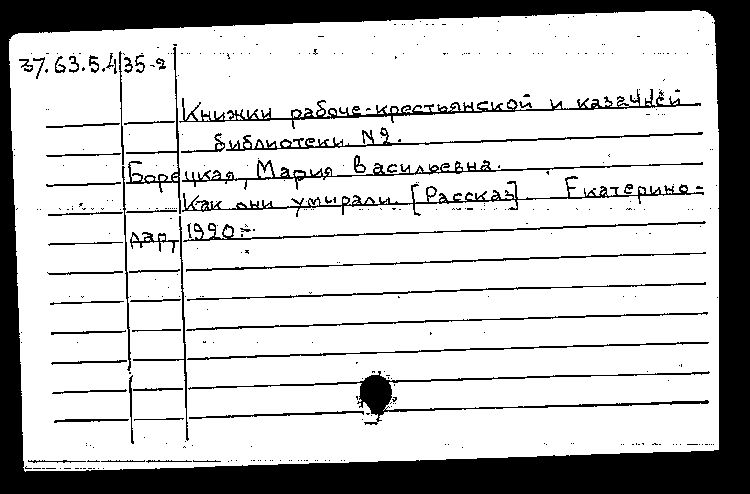 37.63.5.4/35-2
Книжки рабоче-крестьянской и казачьей
библиотеки №2.
Борецкая, Мария Васильевна.
Как они умирали. [Рассказ]. Екатерино=
дар, 1920.-